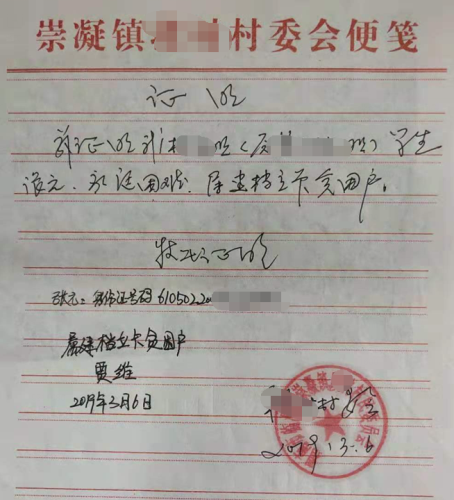 崇凝镇 村委会便笺
证明
兹证明我村 组(原 组)学生
张元,家庭困难,属建档立卡贫困户。
特此证明
张元:身份证号码 6105022
属建档立卡贫困户
贾维
2019年3月6日
村委会
2019.3.6